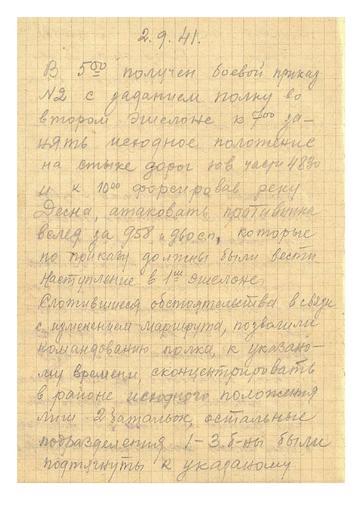 2.9.41.
В 5 00 получен боевой приказ
№2 с заданием полку во
втором эшелоне к 7 00 за-
нять исходное положение
на стыке дорог юв части
и к 10 00 форсировав реку
Десна, атаковать противника
вслед за 958 которые
по приказу должны были вести
наступление в 1 эшелоне.
Сложившиеся обстоятельства в связи
с изменением маршрута, позволили
командованию полка, к указано-
му времени сконцентрировать
в районе исходного положения
лиш 2 баталион, остальные
подразделения 1-3 б-ны были
подтянуты к указаному